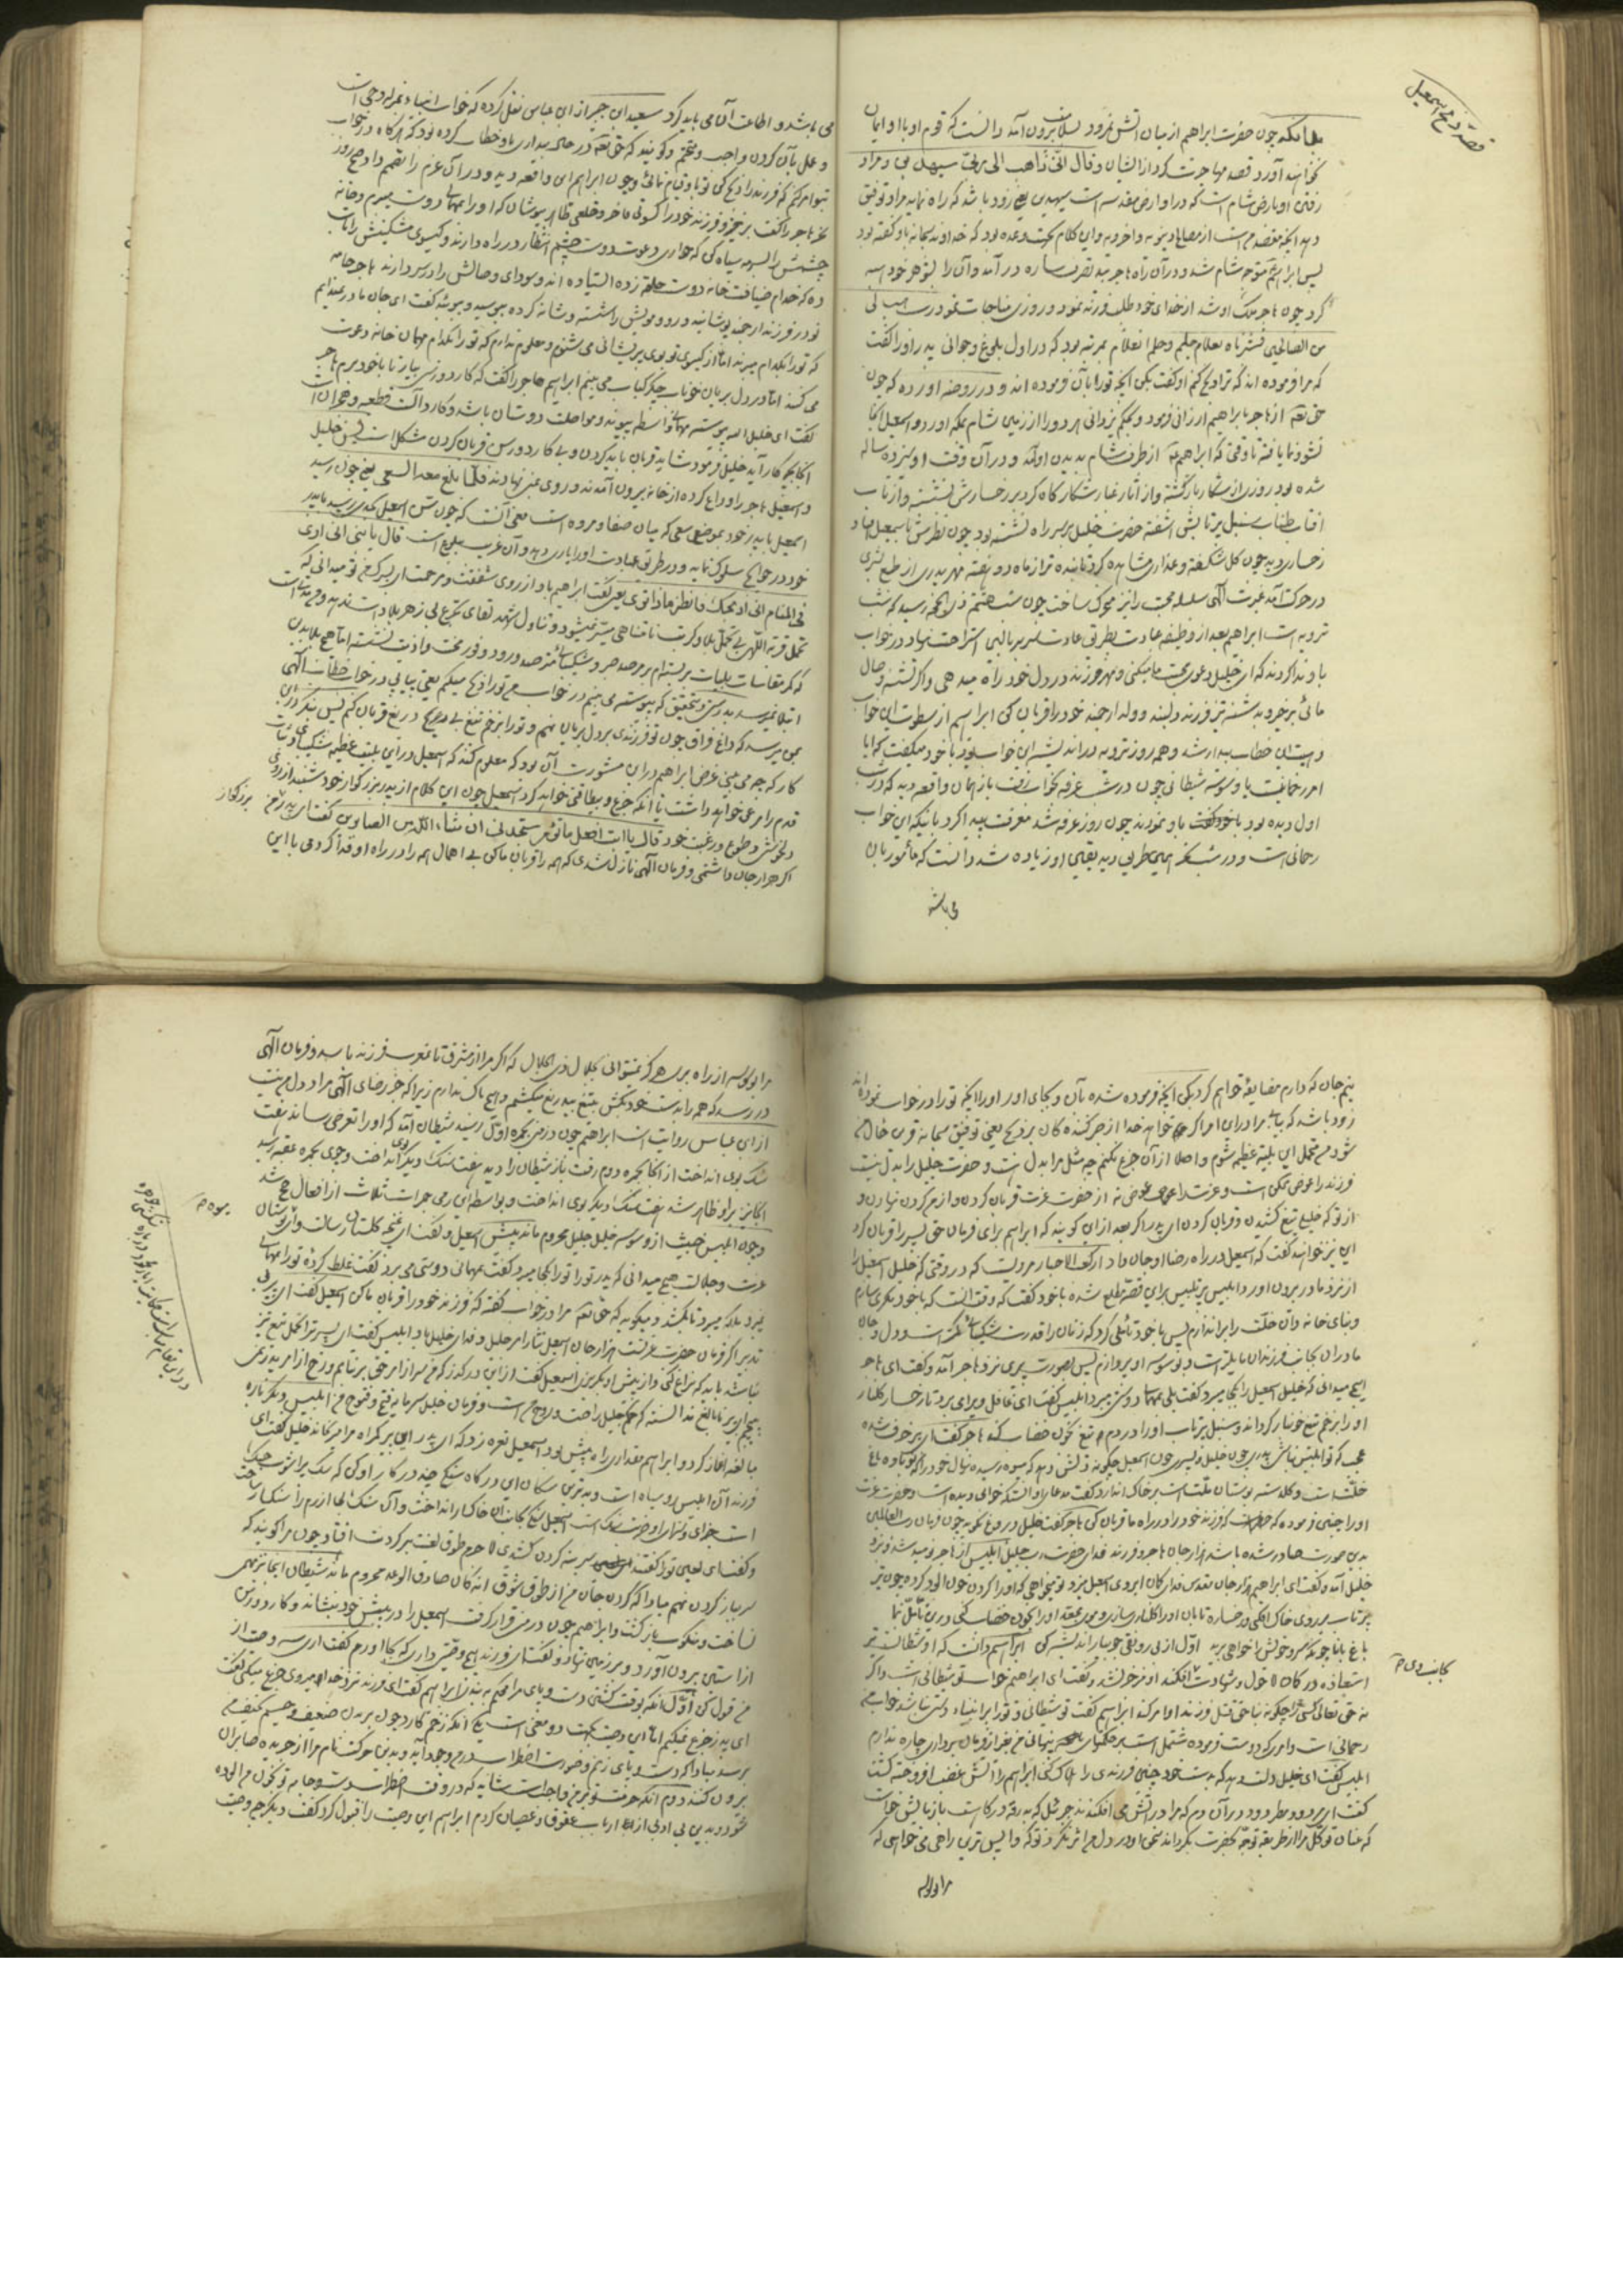 قصهٔ ذبح اسمعیل
بدانکه چون حضرت ابراهیم از میان آتش نمرود بسلامت بیرون آمد دانست که قوم او با او ایمان
نخواهند آورد قصد مهاجرت کرد از ایشان و قال انی ذاهب الی ربی سیهدین و مراد
رفتن او بارض شام است که در او ارض مقدسه است سیهدین یعنی زود باشد که راه نماید مرا و توفیق
دهد آنچه مقصد من است از مصالح دینویه و اخرویه و این کلام بجهت وعده بود که خداوند سبحانه باو گفته بود
پس ابراهیم متوجه شام شد و در آن راه هاجر بتصرف ساره در آمد و آن را بشوهر خود هبه
کرد چون هاجر ملک او شد از خدای خود طلب فرزند نمود و روزی مناجات نمود رب هب لی
من الصالحین فبشرناه بغلام حلیم و حلم غلام بمرتبه بود که در اول بلوغ و جوانی پدر او را گفت
که مرا فرموده اند که ترا ذبح کنم او گفت بکن آنچه تو را بآن فرموده اند و در روضه آورده که چون
حق تعه از هاجر بابراهیم ارزانی فرمود و بحکم یزدانی هر دو را از زمین شام بمکه آورد و اسمعیل آنجا
نشو و نما یافته تا وقتی که ابراهیم از طرف شام بدیدن او آمد و در آن وقت او سیزده ساله
شده بود روزی از شکار بازگشته و از آثار غبار شکارگاه گرد بر رخسارش نشسته و از تاب
آفتاب طناب سنبل پرتابش آشفته حضرت خلیل بر سر راه نشسته بود چون نظرش باسمعیل افتاد
رخساری دید چون گل شکفته و عذاری مشاهده کرد تابنده تر از ماه دو هفته مهر پدری از طبع بشری
در حرکت آمد غیرت الهی سلسله محبت را نیز محرک ساخت چون شب هشتم ذی الحجه رسید که شب
ترویه است ابراهیم بعد از وظیفه عبادت بطریق عادت سر بر بالین استراحت نهاد در خواب
باو ندا کردند که ای خلیل دعوی محبت ما میکنی و مهر فرزند در دل خود راه میدهی و اگر تشنه وصال
مائی برخیز و بدشنه تیز فرزند دلبند و ولد ارجمند خود را قربان کن ابراهیم از سطوت این خواب
و هیبت این خطاب بیدار شد و همه روز ترویه در اندیشه این خواب بود با خود میگفت که آیا
امر رحمانیست یا وسوسه شیطانی چون در شب عرفه بخواب رفت باز همان واقعه دید که در شب
اول دیده بود باو نمودند چون روز عرفه شد معرفت پیدا کرد بآنکه این خواب
رحمانی است و در شب دیگر همین طریق دید یقین او زیاده شد دانست که مأمور بآن
می باشد
می باشد و اطاعت آن می باید کرد سعید ابن جبیر از ابن عباس نقل کرده که خواب انبیاء بمنزله وحی است
و عمل بآن کردن واجب و متحتم و گویند که حق تعه در حال بیداری باو خطاب کرده بود که هرگاه در خواب
بتو امر کنم که فرزند را ذبح کنی تو باو قیام نمائی و چون ابراهیم این واقعه دید و در آن عزم را تصمیم داد صبح روز
نحر هاجر را گفت برخیز و فرزند خود را کسوتی فاخر و خلعی ظاهر بپوشان که او را بمهمانی دوست میبرم و خانه
چشمش را بسرمه سیاه کن که حواری دعوت دوست چشم انتظار در راه دارند و گیسوی مشکینش را تاب
ده که خدام ضیافت خانه دوست حلقه زده ایستاده اند و سودای وصالش را در سر دارند هاجر جامه
نو در فرزند ارجمند پوشانید و رو و مویش را شسته و شانه کرده ببوسید و ببوئید گفت ای جان مادر نمیدانم
که تو را بکدام میبرند اما از گیسوی تو بوی پریشانی می شنوم و معلوم ندارم که تو را بکدام مهمان خانه دعوت
می کنند اما در دل بریان خوناب جگر کباب می بینم ابراهیم هاجر را گفت که کارد و رسنی بیار تا با خود برم هاجر
گفت ای خلیل الله پیوسته مهمانی واسطه پیوند و مواصلت دوستان باشد و کارد آلت قطعیه و هجران است
آنجا بچه کار آید خلیل فرمود شاید قربان باید کردن و بی کارد و رسن قربان کردن مشکل است پس خلیل
و اسمعیل هاجر را وداع کرده از خانه بیرون آمدند و روی بمنی نهادند فلما بلغ معه السعی یعنی چون رسید
اسمعیل با پدر خود بموضع سعی که میان صفا و مروه است معنی آنست که چون سن اسمعیل بحدی رسید با پدر
خود در حوایج سلوک نماید و در طریق عبادت او را یاری دهد و آن عرب بلوغ است قال یا بنی انی اری
فی المنام انی اذبحک فانظر ماذا تری یعنی گفت ابراهیم باو از روی شفقت و مرحمت ای پسرک من تو میدانی که
تحمل قربة اللهی بی تحمل بلا و کربت نامتناهی میسر نمیشود و تناول شهد لقای بی تجرع زهر بلا دست ندهد و من مدتیست
که کمر مقاسات بلیات بر بسته ام و مرصد صبر و شکیبائی مترصد ورود وفور محنت و اذیت نشسته اما هیچ بلا بدین
ابتلا نمیرسد بدرستی و تحقیق که پیوسته می بینم در خواب من تو را ذبح میکنم یعنی پیاپی در خواب خطاب الهی
بمن میرسد که داغ فراق چون تو فرزندی بر دل بریان نهم و تو را بزخم تیغ بی دریغ قربان کنم پس بنگر در این
کار که چه می بینی غرض ابراهیم در این مشورت آن بود که معلوم کند که اسمعیل در این بلیت عظیمه شکیبائی و ثبات
قدم را مرعی خواهد داشت یا آنکه جزع و بیطاقتی خواهد کرد اسمعیل چون این کلام از پدر بزرگوار خود شنید از روی
دلخوشی و طوع و رغبت خود قال یا ابت افعل ما تؤمر ستجدنی ان شاء الله من الصابرین گفت ای پدر من بزرگوار
اگر هزار جان داشتمی و فرمان الهی نازل شدی که همه را قربان ما کن بی اهمال همه را در راه او فدا کردمی با این
نیم جان که دارم مضایقه خواهم کرد بکن آنچه فرموده شده بآن و بجای آور او را آنچه تو را در خواب نموده اند
زود باشد که بیابی مرا در این امر اگر خواهد خدا از صبر کننده کان بر ذبح یعنی توفیق سبحانه قرین حال من
شود من تحمل این بلیه عظیمه شوم و اصلا از آن جزع نکنم چه مثل مرا بدل هست و حضرت جلیل را بدل نیست
فرزند را عوض ممکن است و عزت را عوض نه از حضرت عزت قربان کردن و از من گردن نهادن و
از تو که خلیل تیغ کشیدن و قربان کردن ای پدر اگر بعد از این گویند که ابراهیم برای فرمان حق پسر را قربان کرد
این نیز خواهند گفت که اسمعیل در راه رضا او جان داد از کعب الاحبار مرویست که در وقتی که خلیل اسمعیل را
از نزد مادر بیرون آورد ابلیس پر تلبیس بر این قصه مطلع شده با خود گفت که وقت آنست که با خود مکری سازم
و بنای خانه دان خلت را براندازم پس با خود تأملی کرد که زنان را قدرت شکیبائی کمتر است و دل و جان
مادران بجانب فرزندان مایلتر است و بوسوسه او پردازم پس بصورت پیری نزد هاجر آمد و گفت ای هاجر
هیچ میدانی که خلیل اسمعیل را بکجا میبرد گفت بلی بمهمانی دوستی میبرد ابلیس گفت ای غافل او را میبرد تا رخسار گلنار
او را بزخم تیغ خونبار گرداند و سنبل پرتاب او را در دم تیغ بخون خضاب کند هاجر گفت ای پیر خرف شده
عجب که تو ابلیس نباشی پدری چون خلیل و پسری چون اسمعیل چگونه دلش دهد که میوه رسیده نهال خود را که نوباوه باغ
خلت است و گلدسته بوستان ملت است بر خاک اندازد گفت مدعای او آنست که خوابی دیده است و حضرت عزت
او را چنین فرموده که فرزند خود را در راه ما قربان کن هاجر گفت خلیل دروغ نگوید چون فرمان رب العالمین
بدین صورت صادر شده باشد هزار جان هاجر و فرزند فدای حضرت رب جلیل ابلیس از هاجر نومید شد و نزد
خلیل آمد و گفت ای ابراهیم هزار جان مقدس فدای کمان ابروی اسمعیل سزد تو میخواهی که او را گردن خون آلود کرده چون تیر
پرتاب بر روی خاک افکنی و رخساره تابان او را گلنار سازی و موی جعد او را بخون خضاب کنی در این تأمل نما
استعاذه در گاه لاحول و شهادت افکند او نمی خراشد و گفت ای ابراهیم خواب تو شیطانی است و اگر
نه حق تعالی کسی را چگونه بناحق قتل فرزند او امر کند ابراهیم گفت تو شیطانی و تو را بر انبیاء دستی نباشد خواب من
رحمانی است و امری که دوست فرموده مشتمل است بر حکمتهای پنهانی من بغیر از فرمان برداری چاره ندارم
ابلیس گفت ای خلیل دلت دهد که بدست خود چنین فرزندی را هلاک کنی ابراهیم را آتش غضب افروخته گشت
گفت ای مردود مطرود در آن دم که مرا در آتش می افکندند جبرئیل که به رقه در کاست باز مالش خواست
که عنان توکل مرا از طریقه توجه بحضرت بگرداند سخن او در دل من اثر نکرد تو که وا پس ترین راهی می خواهی که
مرا بوسوسه از راه بری هرگز نتوانی بجلال ذی الجلال که اگر مرا از مشرق تا مغرب فرزند باشد و فرمان الهی
در رسد که همه را بدست خود بکش بتیغ بیدریغ میکشم و هیچ باک ندارم زیرا که جز رضای الهی مراد دل من نیست
از ابن عباس روایت است ابراهیم چون در منی بجمره اول رسید شیطان آمد که او را تعرض رساند هفت
سنک بوی انداخت از آنجا بجمره دوم رفت باز شیطان را دید هفت سنک دیگر بوی انداخت و چون بجمره عقبه رسید
آنجا نیز براو ظاهر شد هفت سنک دیگر بوی انداخت و بواسطه این رمی جمرات ثلاث از افعال حج شد
و چون ابلیس خبیث از وسوسه خلیل جلیل محروم ماند پیش اسمعیل و گفت ای غنچه گلستان رسالت و ای نوشان
عزت و جلالت هیچ میدانی که پدر تو را بکجا میبرد گفت بمهمانی دوستی می برد گفت غلط کرده تو را بمهمانی
نمیبرد بلکه میبرد تا بکشد و میگوید که حق تعه مرا در خواب گفته که فرزند خود را قربان ما کن اسمعیل گفت ای پیر بی
تدبیر اگر فرمان حضرت عزتست هزار جان اسمعیل نثار امر جلیل و فدای خلیل باد ابلیس گفت ای پسر ترا تحمل تیغ تیز
نباشد باید که نزاع کنی و از پیش او بگریزی اسمعیل گفت از این در گذر که من سر از امر حق بر نتابم و رخ از امر پدر نمی
پیچم این پیر نابالغ ندانسته که حکم جلیل راحت و روح من است و فرمان خلیل سرمایه فتح و فتوح من ابلیس دیگر باره
مبالغه آغاز کرد و ابراهیم مقداری راه پیش بود اسمعیل نعره زد که ای پدر این پیر گمراه مرا میرنجاند خلیل گفت ای
فرزند آن ابلیس رو سیاه است و بدترین سگان این درگاه سنگی چند در کار او کن که سک را
است جزای و سزای او ضرب سنک است اسمعیل سنک بجانب آن خاکسار انداخت و آن سنگهای از رم را سنگسار ساخت
و گفت ای لعین تو را گفتند سر بنه گردن کشیدی لاجرم طوق لعنت بر گردنت افتاد چون مرا گویند که
سر باز گردن نهم مبادا که گردن جان من از طوق شوق انه کان صادق الوعد محروم ماند شیطان آنجا نیز مهمی
نساخت و منکوب باز گشت و ابراهیم چون در منی قرار گرفت اسمعیل را در پیش خود بنشاند و کارد و رسن
از آستین بیرون آورد و بر زمین نهاد و گفت ای فرزند هیچ وصیتی داری که بجا آورم گفت آری سه وصیت از
من قبول کن اول آنکه بوقت کشتن دست و پای مرا محکم ببندی ابراهیم گفت ای فرزند نزد خدا میروی جزع میکنی گفت
ای پدر جزع نمیکنم اما این وصیت دو معنی است یکی آنکه زخم کارد چون بر بدن ضعیف و جسم نحیف من
برسد مبادا که دست و پای زنم و صورت اضطراب در من وجود آید و بدین حرکت نام مرا از جریده صابران
بیرون کنند دوم آنکه حرمت تو بر من واجب است شاید که در وقت اضطراب دست و جامه تو بخون من آلوده
شود و بدین بی ادبی از ارباب عقوق و عصیان گردم ابراهیم این وصیت را قبول کرد گفت دیگر چه وصیت